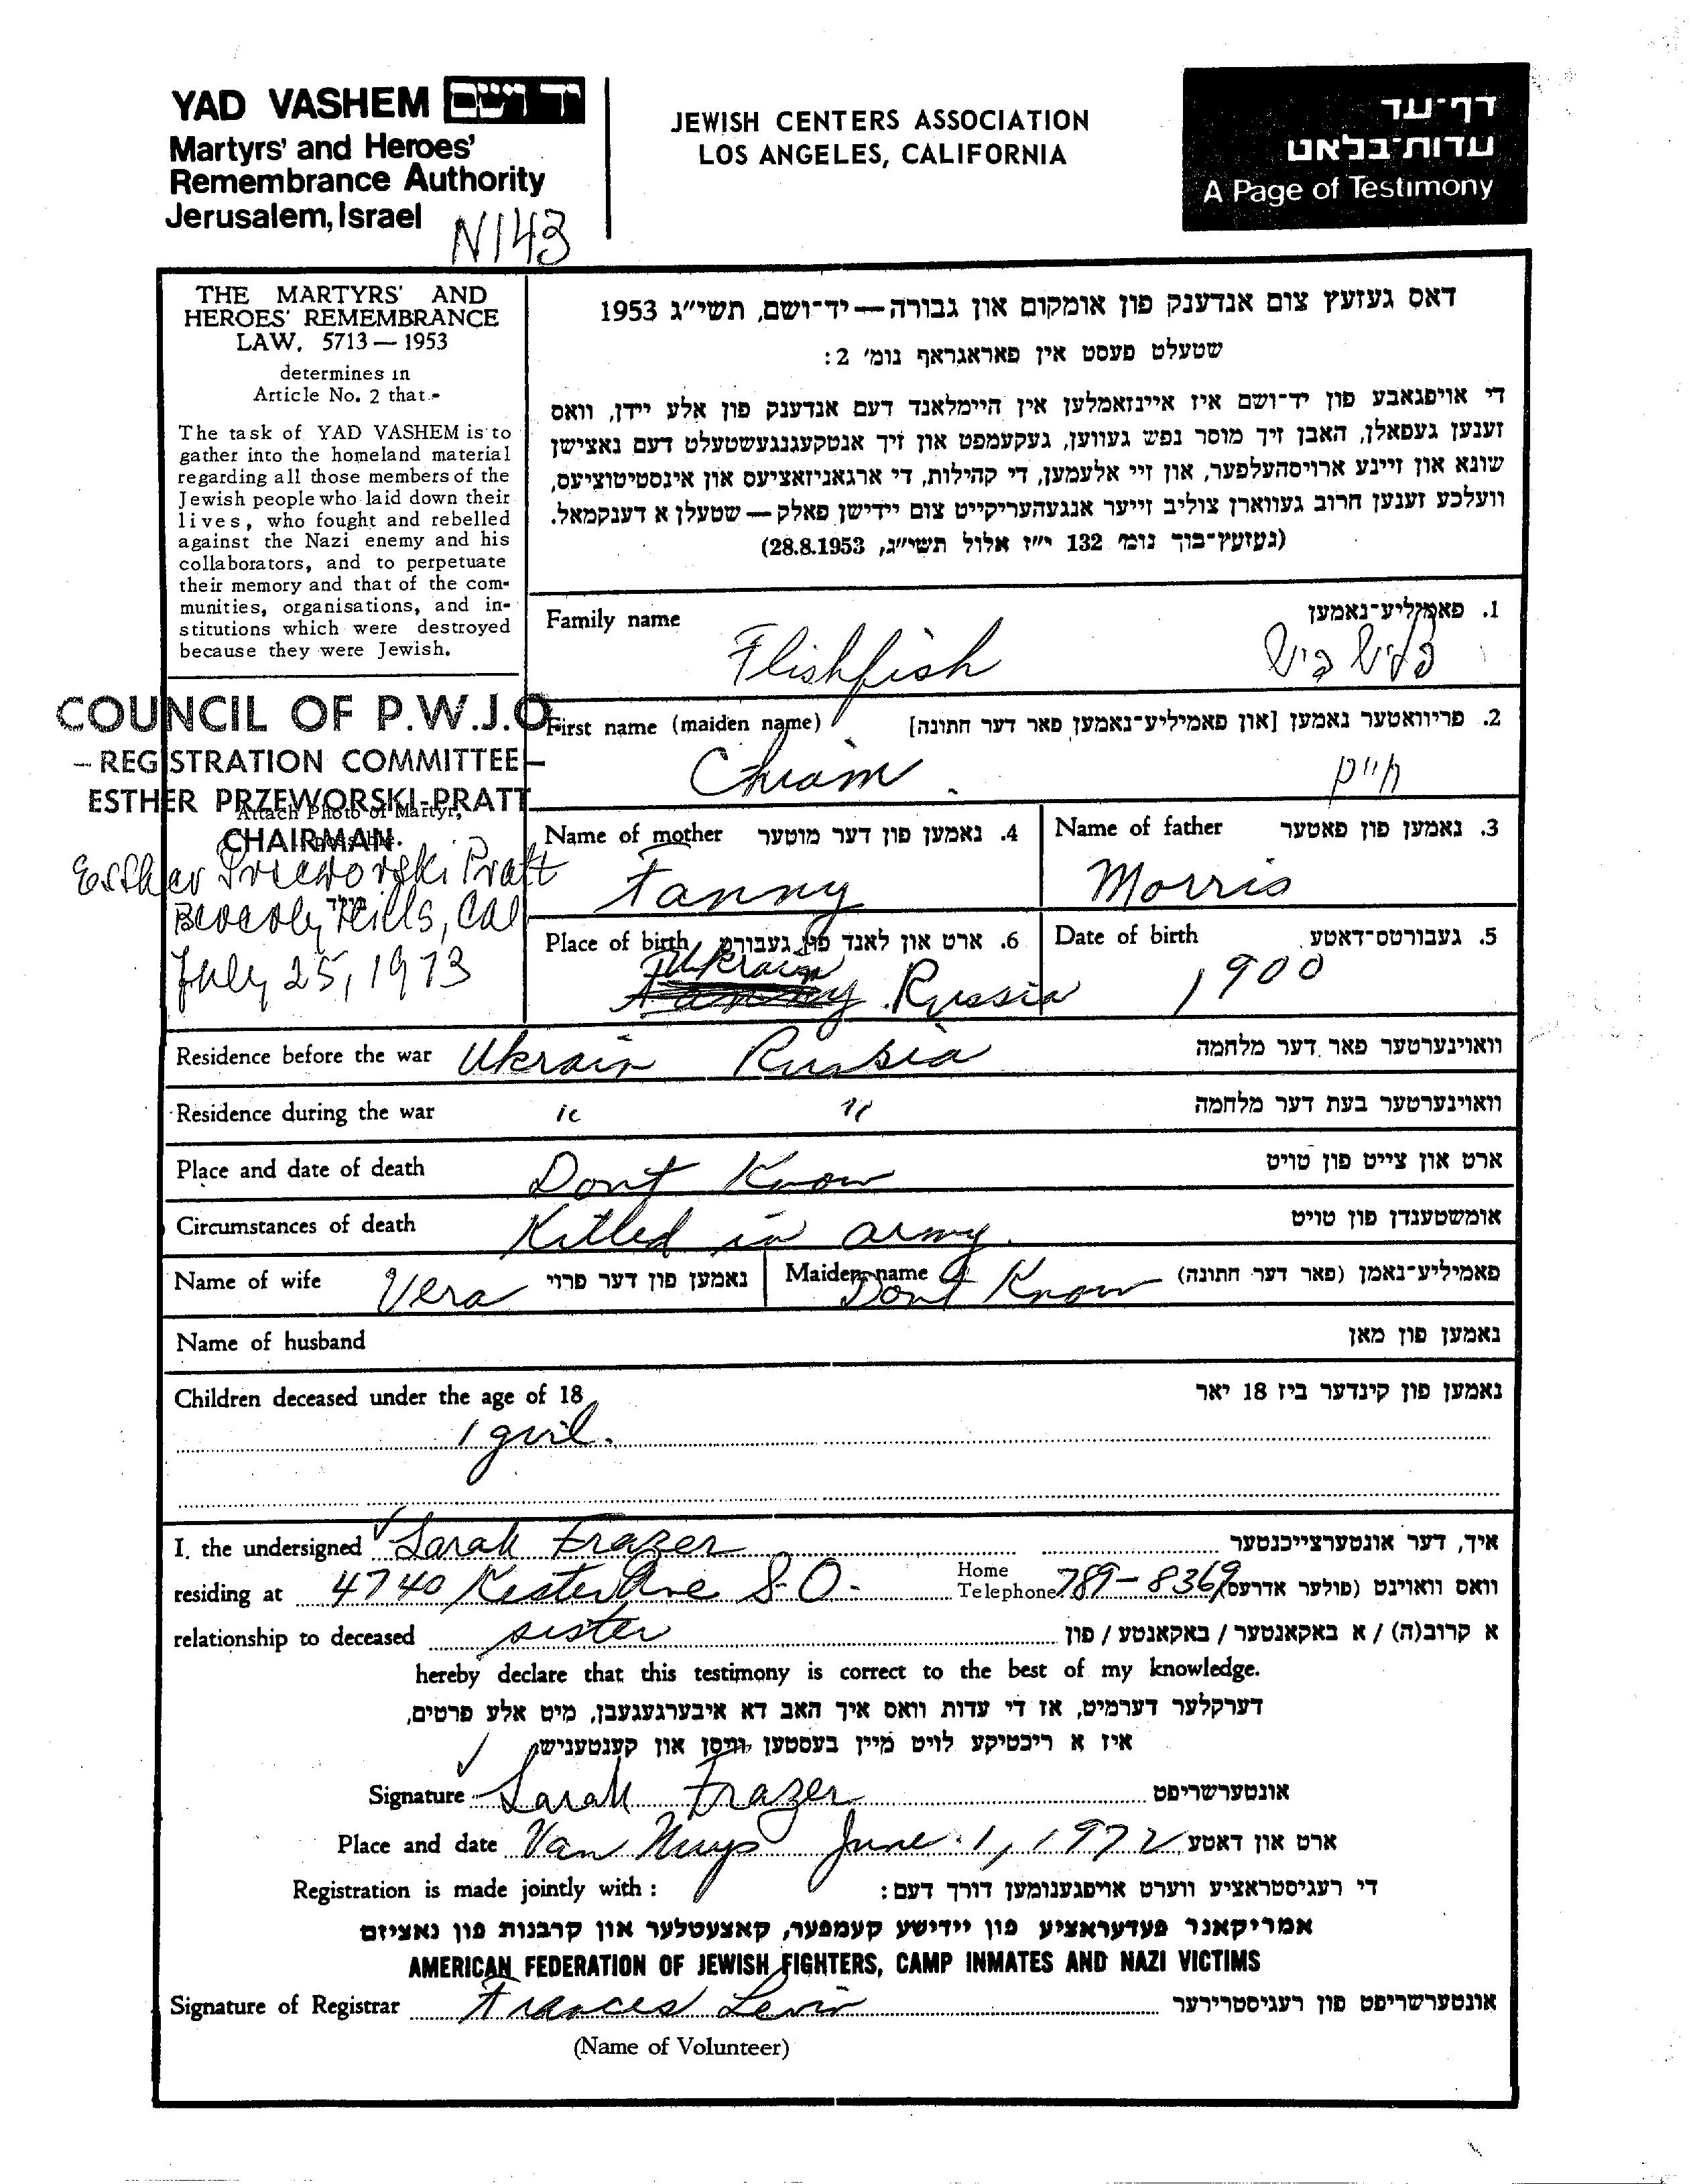 YAD VASHEM יד ושם
Martyrs' and Heroes'
Remembrance Authority
Jerusalem, Israel
N143
JEWISH CENTERS ASSOCIATION
LOS ANGELES, CALIFORNIA
דף-עד
עדות-בלאט
A Page of Testimony
THE MARTYRS' AND
HEROES' REMEMBRANCE
LAW, 5713 — 1953
determines in
Article No. 2 that -
The task of YAD VASHEM is to
gather into the homeland material
regarding all those members of the
Jewish people who laid down their
lives, who fought and rebelled
against the Nazi enemy and his
collaborators, and to perpetuate
their memory and that of the com-
munities, organisations, and in-
stitutions which were destroyed
because they were Jewish.
דאס געזעץ צום אנדענק פון אומקום און גבורה — יד-ושם, תשי"ג 1953
שטעלט פעסט אין פאראגראף נומ' 2:
די אויפגאבע פון יד-ושם איז איינזאמלען אין היימלאנד דעם אנדענק פון אלע יידן, וואס
זענען געפאלן, האבן זיך מוסר נפש געווען, געקעמפט און זיך אנטקעגנגעשטעלט דעם נאצישן
שונא און זיינע ארויסהעלפער, און זיי אלעמען, די קהילות, די ארגאניזאציעס און אינסטיטוציעס,
וועלכע זענען חרוב געווארן צוליב זייער אנגעהעריקייט צום יידישן פאלק — שטעלן א דענקמאל.
(געזעץ-בוך נומ' 132 י"ז אלול תשי"ג, 28.8.1953)
COUNCIL OF P.W.J.O
- REGISTRATION COMMITTEE -
ESTHER PRZEWORSKI-PRATT
Attach Photo of Martyr,
CHAIRMAN.
Esther Przeworski Pratt
Beverly Hills, Cal
July 25, 1973
Family name 1. פאמיליע-נאמען
Flishfish פליש פיש
First name (maiden name) 2. פריוואטער נאמען [און פאמיליע-נאמען פאר דער חתונה]
Chiam חיים
Name of mother 4. נאמען פון דער מוטער Name of father 3. נאמען פון פאטער
Fanny Morris
Place of birth 6. ארט און לאנד פון געבורט Date of birth 5. געבורטס-דאטע
Ukrain Russia 1900
Residence before the war Ukrain Russia וואוינערטער פאר דער מלחמה
Residence during the war " " וואוינערטער בעת דער מלחמה
Place and date of death Dont Know ארט און צייט פון טויט
Circumstances of death Killed in army. אומשטענדן פון טויט
Name of wife Vera נאמען פון דער פרוי Maiden name Dont Know פאמיליע-נאמן (פאר דער חתונה)
Name of husband נאמען פון מאן
Children deceased under the age of 18 נאמען פון קינדער ביז 18 יאר
1 gril.
I, the undersigned Sarah Frazer איך, דער אונטערצייכנטער
residing at 4740 Kester Ave S.O. Home Telephone 789-8369 וואס וואוינט (פולער אדרעס)
relationship to deceased sister א קרוב(ה) / א באקאנטער / באקאנטע / פון
hereby declare that this testimony is correct to the best of my knowledge.
דערקלער דערמיט, אז די עדות וואס איך האב דא איבערגעגעבן, מיט אלע פרטים,
איז א ריכטיקע לויט מיין בעסטען וויסן און קענטעניש.
Signature Sarah Frazer אונטערשריפט
Place and date Van Nuys June 1, 1972 ארט און דאטע
Registration is made jointly with: די רעגיסטראציע ווערט אויפגענומען דורך דעם:
אמריקאנר פעדעראציע פון יידישע קעמפער, קאצעטלער און קרבנות פון נאציזם
AMERICAN FEDERATION OF JEWISH FIGHTERS, CAMP INMATES AND NAZI VICTIMS
Signature of Registrar Frances Levin אונטערשריפט פון רעגיסטרירער
(Name of Volunteer)